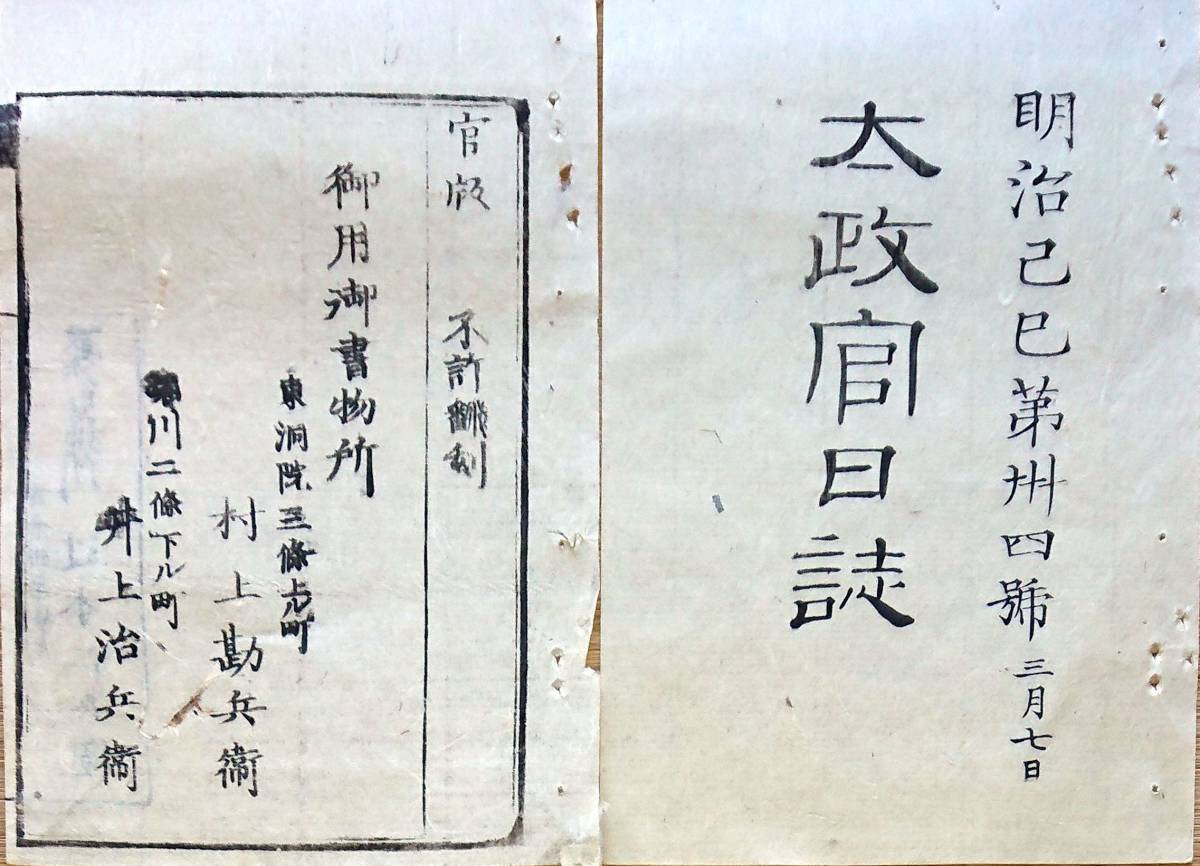 明治己巳第卅四號 三月七日
太政官日誌
官版 不許飜刻
御用御書物所
東洞院三條上ル町
村上勘兵衞
川二條下ル町
井上治兵衞